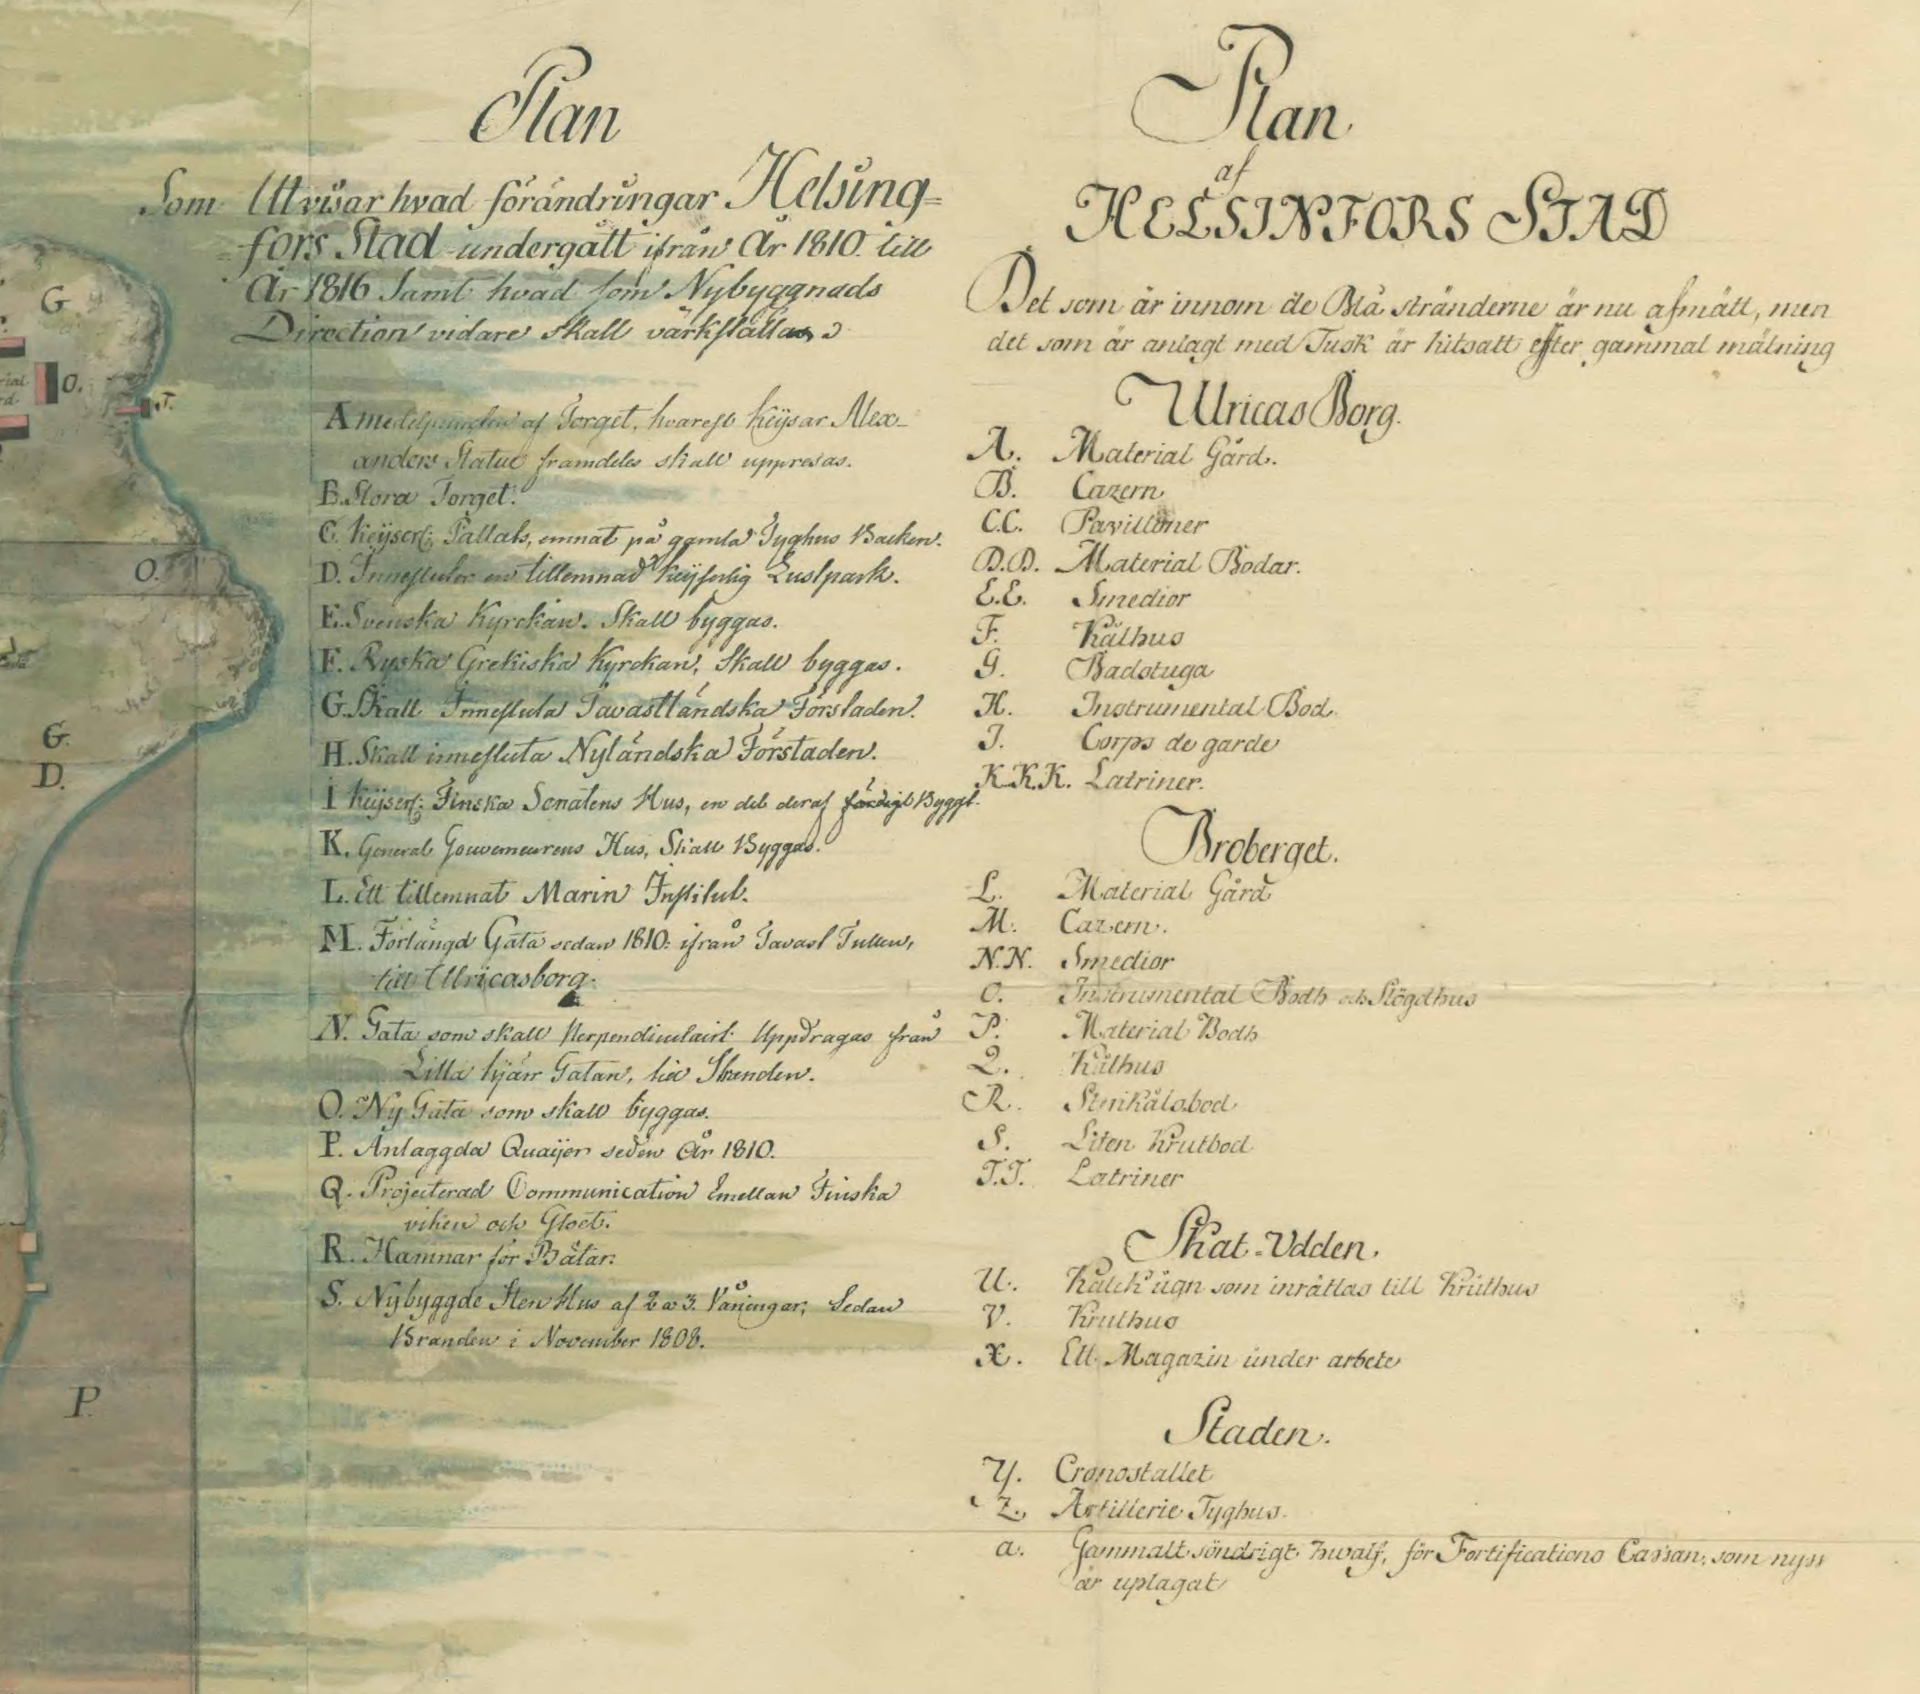 Plan
Som Utvisar hvad förändringar Helsing=
=fors Stad undergått ifrån År 1810. till
År 1816 Samt hvad som Nybyggnads
Direction vidare skall värkställas
A medelpuncten af Torget, hvarest Keijsar Alex-
anders Statue framdeles skall uppresas.
B. Stora Torget.
C. Keijserl: Pallats, ämnat på gamla Tyghus Backen.
D. Innesluter en tillemnad Keijserlig Lustpark.
E. Svenska Kyrckan. Skall byggas.
F. Ryska Grekiska Kyrckan, Skall byggas.
G. Skall Innesluta Tavastländska Förstaden.
H. Skall innesluta Nyländska Förstaden.
I Keijserl: Finska Senatens Hus, en del deraf färdigt Byggt.
K. General Gouverneurens Hus, Skall Byggas.
L. Ett tillemnat Marin Institut.
M. Förlängd Gata sedan 1810: ifrån Tavast Tullen,
till Ulricasborg.
N. Gata som skall Perpendiculairt Uppdragas från
Lilla Kjärr Gatan, till Stranden.
O. Ny Gata som skall byggas.
P. Anlaggda Quaijer seden År 1810.
Q. Projecterad Communication Emellan Finska
viken och Gloet.
R. Hamnar för Båtar.
S. Nybyggde Sten Hus af 2 a 3. Våningar, Sedan
Branden i November 1808.
Plan
af
HELSINFORS STAD
Det som är innom de Blå stränderne är nu afmätt, men
det som är anlagt med Tusk är hitsatt efter gammal mätning
Ulricas Borg.
A. Material Gård.
B. Cazern
C.C. Pavilloner
D.D. Material Bodar.
E.E. Smedior
F. Kålhus
G. Badstuga
H. Instrumental Bod.
I. Corps de garde
K.K.K. Latriner.
Broberget.
L. Material Gård
M. Cazern.
N.N. Smedior
O. Instrumental Bodh och Slögdhus
P. Material Bodh
Q. Kålhus
R. Stenkålsbod
S. Liten Krutbod
T.T. Latriner
Skat-Udden.
U. Kalck ugn som inrättas till Kruthus
V. Kruthus
X. Ett Magazin under arbete
Staden.
Y. Cronostallet
Z. Artillerie Tyghus.
a. Gammalt söndrigt hwalf, för Fortifications Cassan, som nyss
är uplagat
G
O.
T.
O.
G.
D.
P.